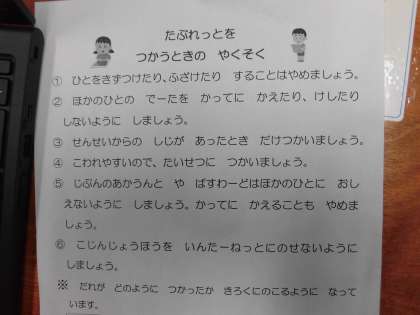 たぶれっとを
つかうときの　やくそく
① ひとをきずつけたり、ふざけたり　することはやめましょう。
② ほかのひとの　でーたを　かってに　かえたり、けしたり
しないように　しましょう。
③ せんせいからの　しじが　あったとき　だけつかいましょう。
④ こわれやすいので、たいせつに　つかいましょう。
⑤ じぶんのあかうんと　や　ぱすわーどはほかのひとに　おし
えないように　しましょう。かってに　かえることも　やめま
しょう。
⑥ こじんじょうほうを　いんたーねっとにのせないように
しましょう。
※ だれが　どのように　つかったか　きろくにのこるように　なって
います。